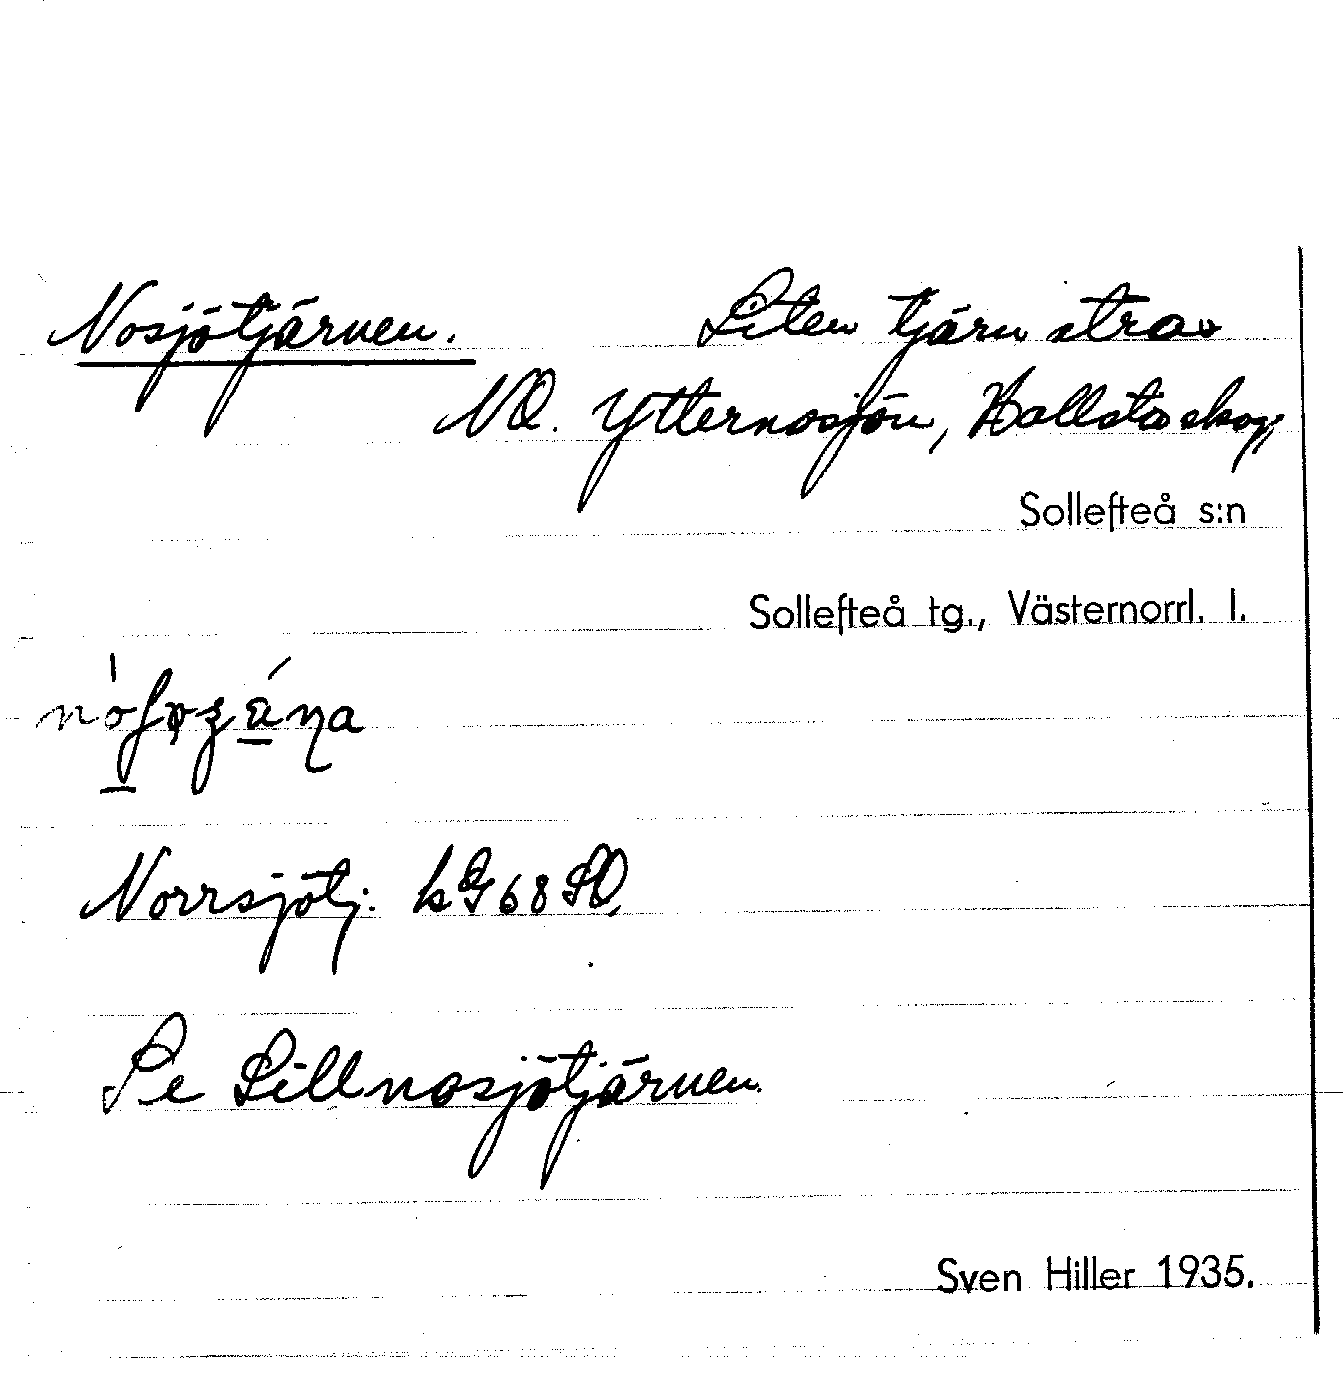 Nosjötjärnen. Liten tjärn strax
NO. Ytternosjön, Hallsta skog,
Sollefteå s:n
Sollefteå tg., Västernorrl. l.
Norrsjötj. kG 68 SO,
Se Lillnosjötjärnen
Sven Hiller 1935.